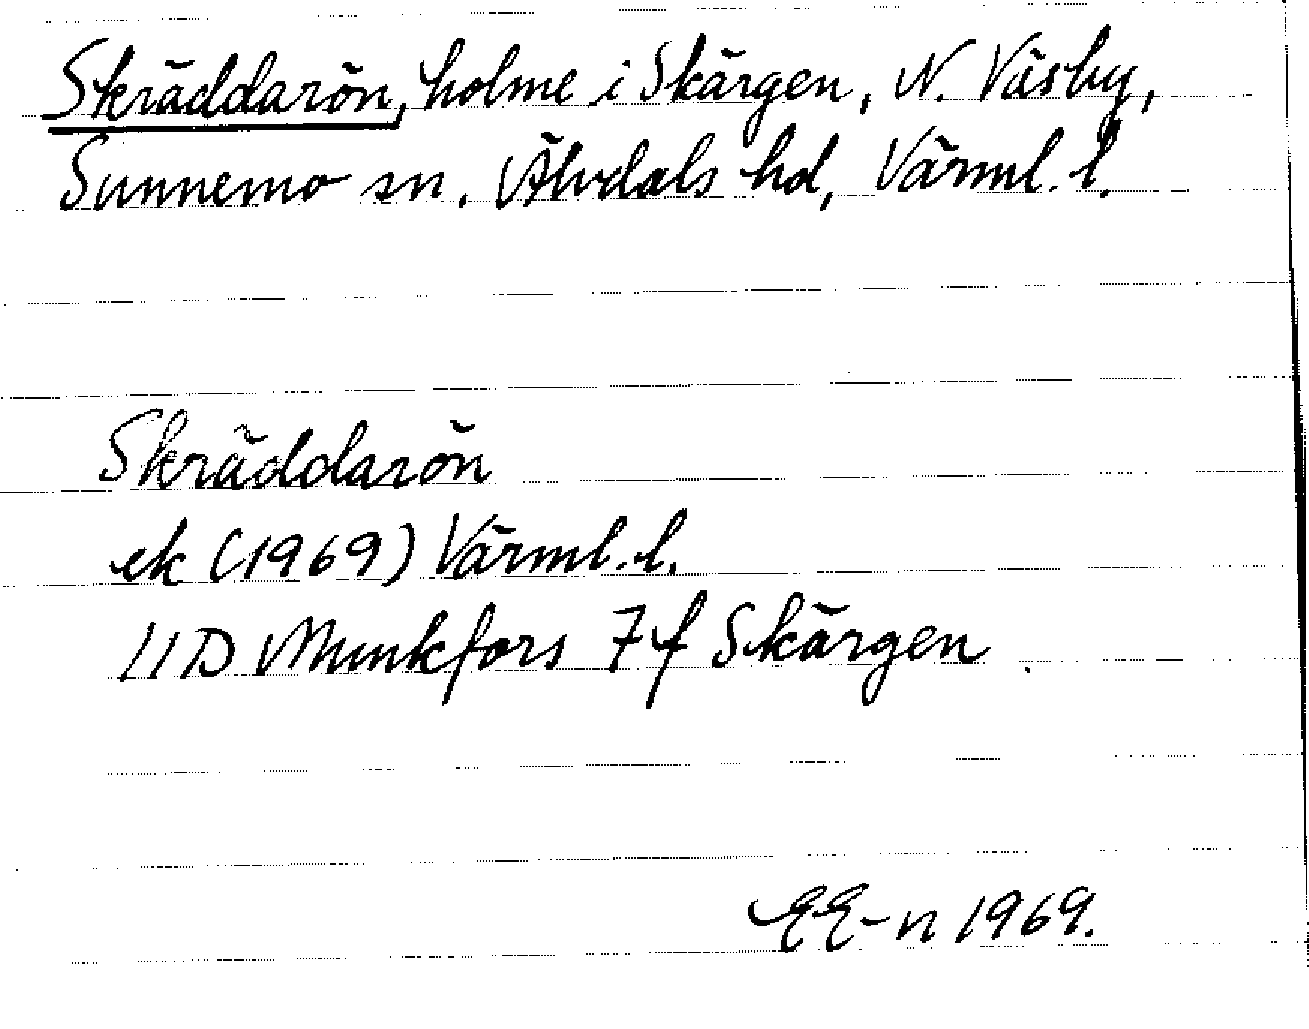 Skräddarön, holme i Skärgen, N. Väsby,
Sunnemo sn, Älvdals hd, Värml. l.
Skräddarön
ek (1969) Värml. l.
11D Munkfors 7f Skärgen.
EE-n 1969.